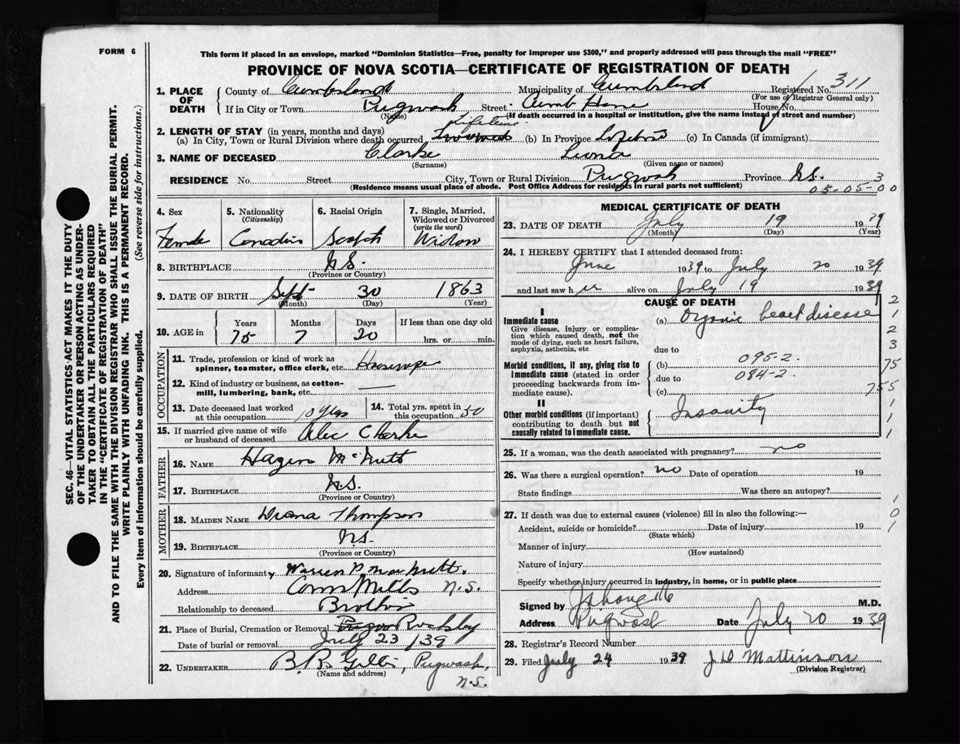 FORM 6
This form if placed in an envelope, marked "Dominion Statistics—Free, penalty for improper use $300," and properly addressed will pass through the mail "FREE"
PROVINCE OF NOVA SCOTIA—CERTIFICATE OF REGISTRATION OF DEATH
SEC. 46—VITAL STATISTICS ACT MAKES IT THE DUTY
OF THE UNDERTAKER OR PERSON ACTING AS UNDER-
TAKER TO OBTAIN ALL THE PARTICULARS REQUIRED
IN THE "CERTIFICATE OF REGISTRATION OF DEATH"
AND TO FILE THE SAME WITH THE DIVISION REGISTRAR WHO SHALL ISSUE THE BURIAL PERMIT.
WRITE PLAINLY WITH UNFADING INK. THIS IS A PERMANENT RECORD.
Every item of information should be carefully supplied. (See reverse side for instructions.)
1. PLACE OF DEATH
County of Cumberland Municipality of Cumberland Registered No. 311
(For use of Registrar General only)
If in City or Town Pugwash Street Cumb Home House No.
(Name) (If death occurred in a hospital or institution, give the name instead of street and number)
2. LENGTH OF STAY (in years, months and days) Lifetime
(a) In City, Town or Rural Division where death occurred (b) In Province Lifetime (c) In Canada (if immigrant)
3. NAME OF DECEASED Clarke Luna
(Surname) (Given name or names)
RESIDENCE No. Street City, Town or Rural Division Pugwash Province N.S. 3
(Residence means usual place of abode. Post Office Address for residents in rural parts not sufficient) 05-05-00
4. Sex Female
5. Nationality (Citizenship) Canadian
6. Racial Origin Scotch
7. Single, Married, Widowed or Divorced (write the word) Widow
8. BIRTHPLACE N.S.
(Province or Country)
9. DATE OF BIRTH Sept 30 1863
(Month) (Day) (Year)
10. AGE in Years Months Days If less than one day old
75 7 20 hrs. or min.
OCCUPATION
11. Trade, profession or kind of work as
spinner, teamster, office clerk, etc.
12. Kind of industry or business, as cotton-
mill, lumbering, bank, etc. —
13. Date deceased last worked at this occupation 10 years
14. Total yrs. spent in this occupation 50
15. If married give name of wife
or husband of deceased Alec Clarke
FATHER
16. NAME Hazen McNutt
17. BIRTHPLACE N.S.
(Province or Country)
MOTHER
18. MAIDEN NAME Diana Thompson
19. BIRTHPLACE N.S.
(Province or Country)
20. Signature of informant Warren P. MacNutt.
Address Mills N.S.
Relationship to deceased Brother
21. Place of Burial, Cremation or Removal
Date of burial or removal July 23/39
22. UNDERTAKER Pugwash,
(Name and address) N.S.
MEDICAL CERTIFICATE OF DEATH
23. DATE OF DEATH July 19 1939
(Month) (Day) (Year)
24. I HEREBY CERTIFY that I attended deceased from:
June 1939 to July 20 1939
and last saw h er alive on July 19 1939
CAUSE OF DEATH
I
Immediate cause (a) Organic heart disease
Give disease, injury or complica-
tion which caused death, not the
mode of dying, such as heart failure,
asphyxia, asthenia, etc
due to
Morbid conditions, if any, giving rise to
Immediate cause (stated in order
proceeding backwards from im-
mediate cause).
(b) 095-2.
due to 084-2.
(c)
II
Other morbid conditions (if important)
contributing to death but not
causally related to immediate cause.
Insanity
2
1
2
3
75
755
1
1
25. If a woman, was the death associated with pregnancy? no
26. Was there a surgical operation? no Date of operation 19
State findings Was there an autopsy?
27. If death was due to external causes (violence) fill in also the following:—
Accident, suicide or homicide? Date of injury 19
(State which)
Manner of injury
(How sustained)
Nature of injury
Specify whether injury occurred in industry, in home, or in public place
1
0
1
Signed by M.D.
Address Pugwash Date July 20 1939
28. Registrar's Record Number
29. Filed July 24 1939 J D Mattinson
(Division Registrar)